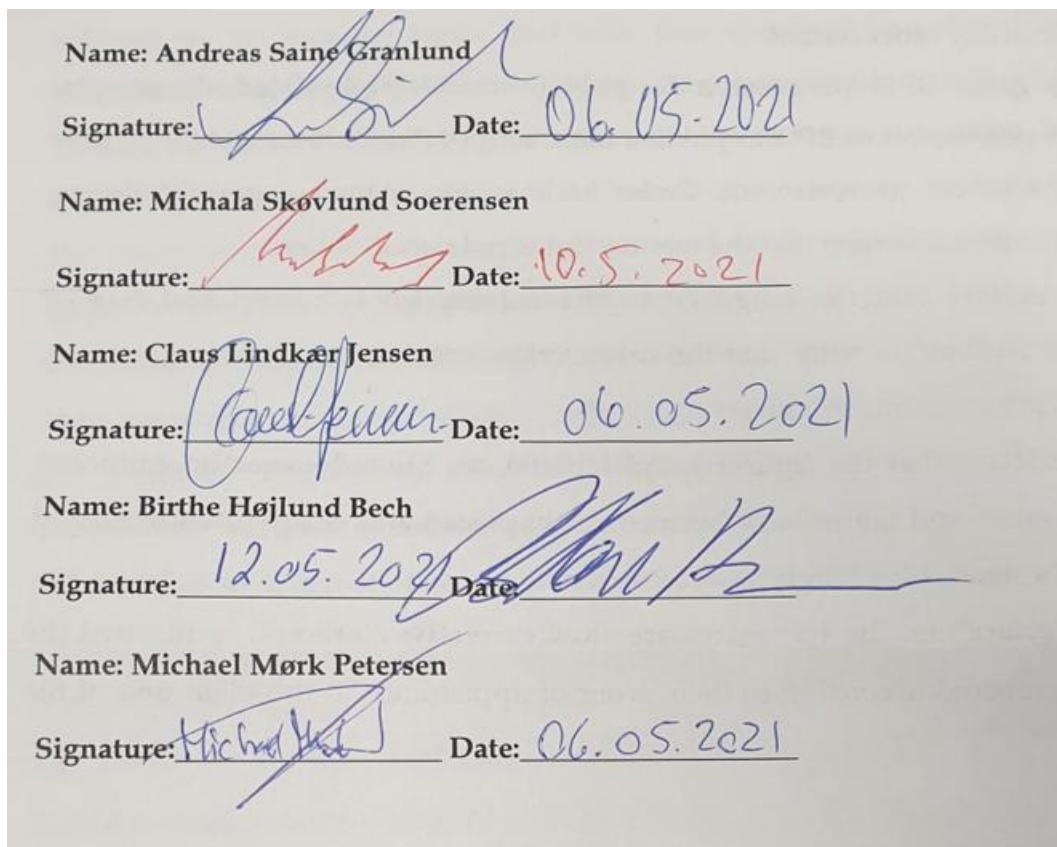 Name: Andreas Saine Granlund
Signature: Date: 06.05.2021
Name: Michala Skovlund Soerensen
Signature: Date: 10.5.2021
Name: Claus Lindkær Jensen
Signature: Date: 06.05.2021
Name: Birthe Højlund Bech
Signature: 12.05.2021 Date:
Name: Michael Mørk Petersen
Signature: Michael Date: 06.05.2021